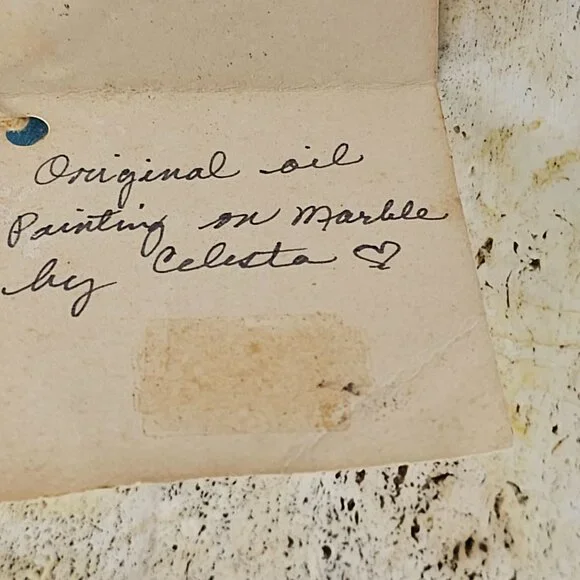 Original oil
Painting on Marble
by Celesta ♡